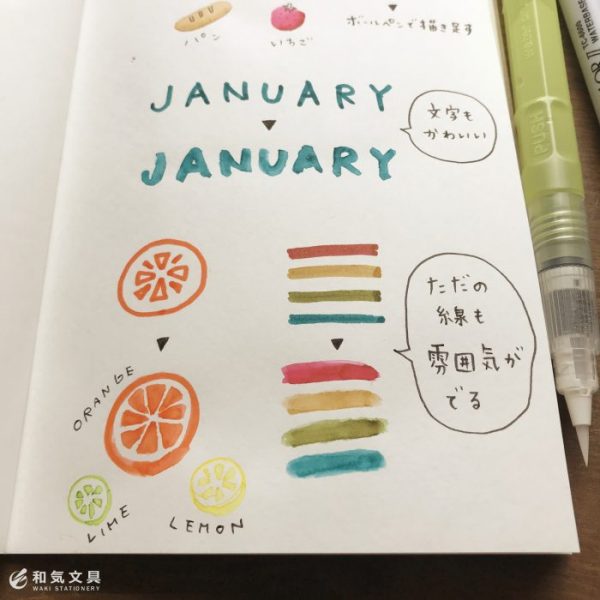 パン
いちご
ボールペンで描き足す
JANUARY
JANUARY
文字も
かわいい
ただの
線も
雰囲気が
でる
ORANGE
LIME
LEMON
PUSH
TC-4000
WATERBASE
和気文具
WAKI STATIONERY